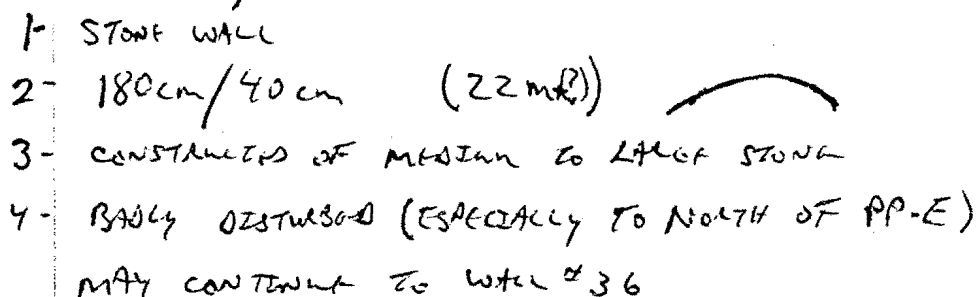 1- STONE WALL
2- 180cm/40cm (22m(?))
3- CONSTRUCTED OF MEDIUM TO LARGE STONE
4- BADLY DISTURBED (ESPECIALLY TO NORTH OF PP-E)
MAY CONTINUE TO WALL #36